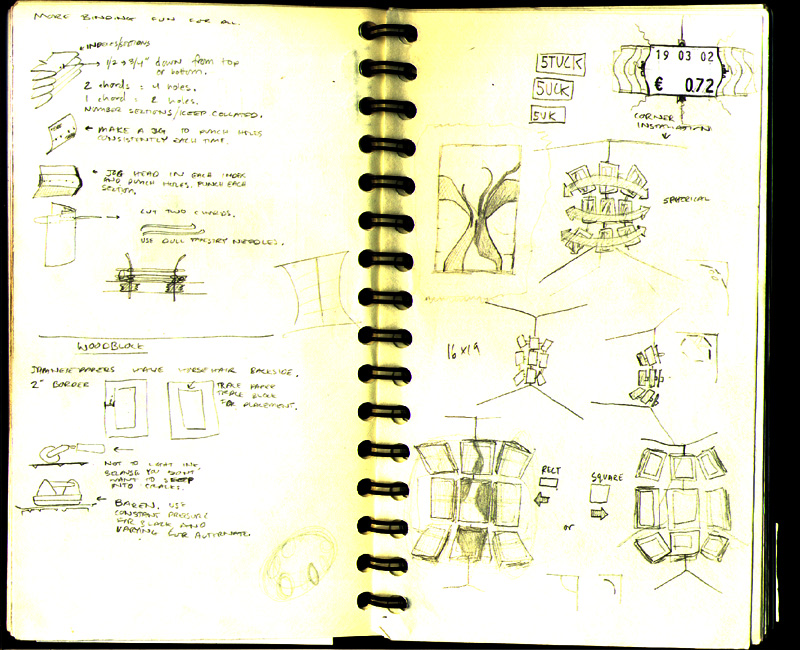 MORE BINDING FUN FOR ALL.
INDEXS/SECTIONS
1/2 → 3/4" down from top
or bottom.
2 chords = 4 holes.
1 chord = 2 holes.
NUMBER SECTIONS/KEEP COLLATED.
MAKE A JIG TO PUNCH HOLES
CONSISTENTLY EACH TIME.
JOG HEAD IN EACH INDEX
AND PUNCH HOLES. PUNCH EACH
SECTION.
CUT TWO CHORDS.
USE DULL TAPESTRY NEEDLES.
WOODBLOCK
JAPANESE PAPERS HAVE HORSE HAIR BACKSIDE.
2" BORDER
TRACE PAPER
TRACE BLOCK
FOR PLACEMENT.
NOT TO LOAD INK
BECAUSE YOU DON'T
WANT TO SEEP
INTO CRACKS.
BAREN. USE
CONSTANT PRESSURE
FOR BLACK AND
VARYING FOR ALTERNATE.
5TUCK
5UCK
5UK
19 03 02
€ 0.72
CORNER
INSTALLATION
SPHERICAL
16 x 19
RECT
SQUARE
or